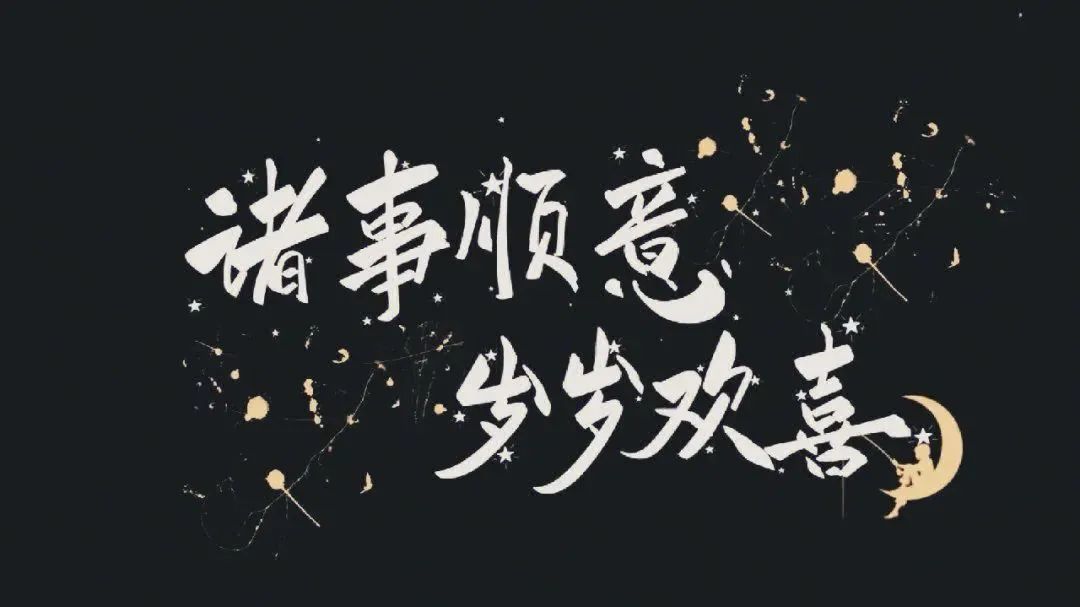 诸事顺意
岁岁欢喜